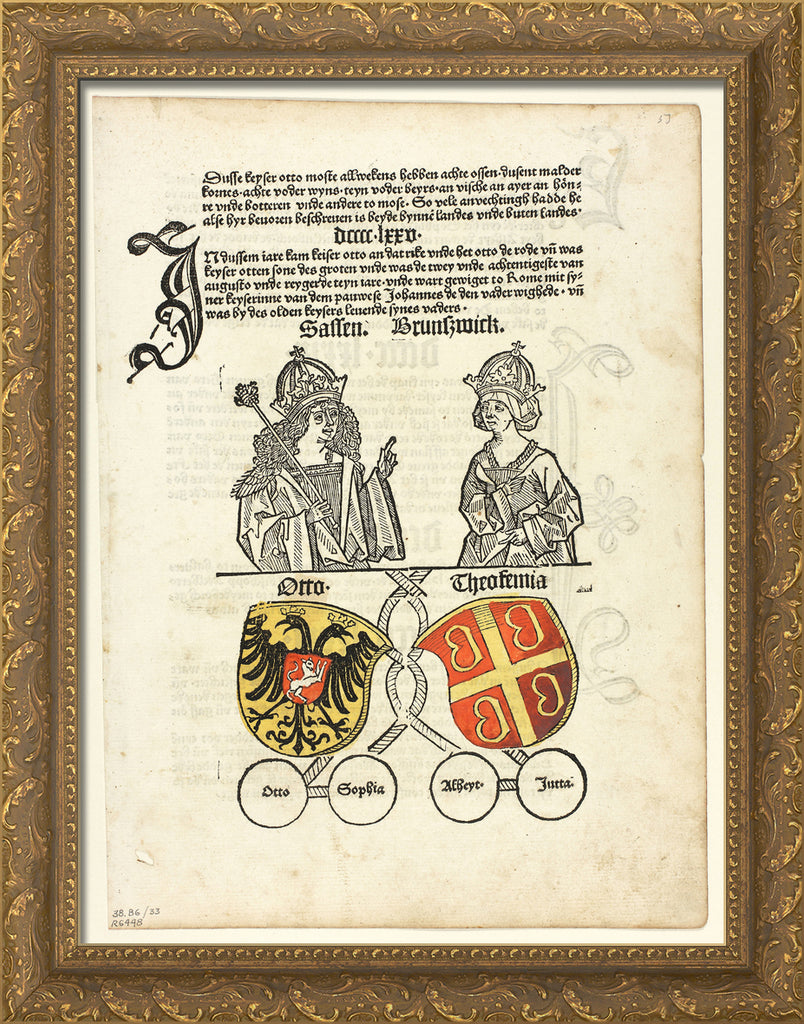 53
Dusse keyser otto moste all wekens hebben achte ossen· dusent malder
kornes· achte voder wyns· teyn voder beyrs· an vische an ayer an hön⸗
re vnde botteren vnde andere to mose· So vele anvechtingh hadde he
alse hyr beuoren beschreuen is beyde bynnē landes vnde buten landes·
dcccc·lxxv·
IN dussem iare kam keiser otto an dat rike vnde het otto de rode vn̄ was
keyser otten sone des groten vnde was de twey vnde achtentigeste van
augusto vnde reygerde teyn iare· vnde wart gewiget to Rome mit sy⸗
ner keyserinne van dem pauwese Johannes de den vader wighede· vn̄
was by des olden keysers leuende synes vaders·
Sassen. Brunszwick.
Otto· Theofemia
Otto Sophia Alheyt· Jutta·
38.86/33
R6448